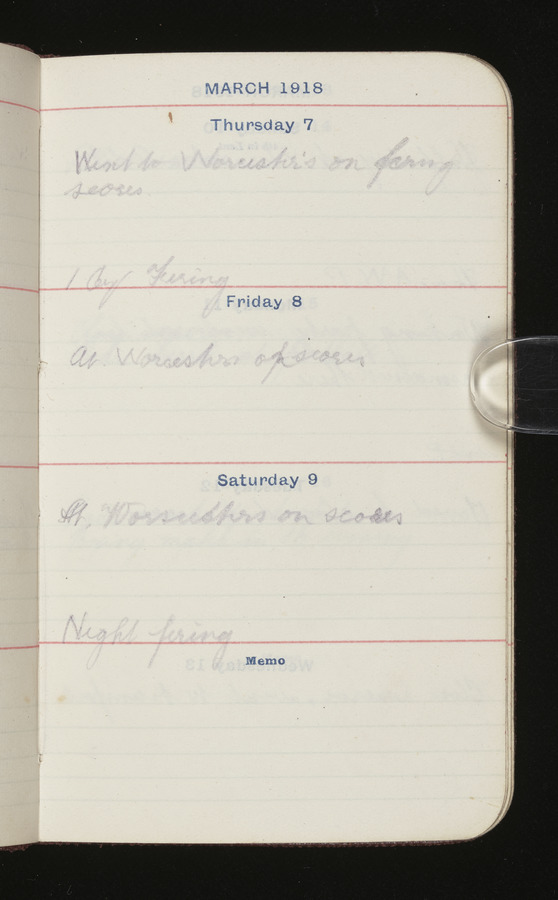 MARCH 1918
Thursday 7
Went to Worcesters on firing
scores
Firing
Friday 8
At Worcesters on scores
Saturday 9
At Worcesters on scores
Night firing
Memo